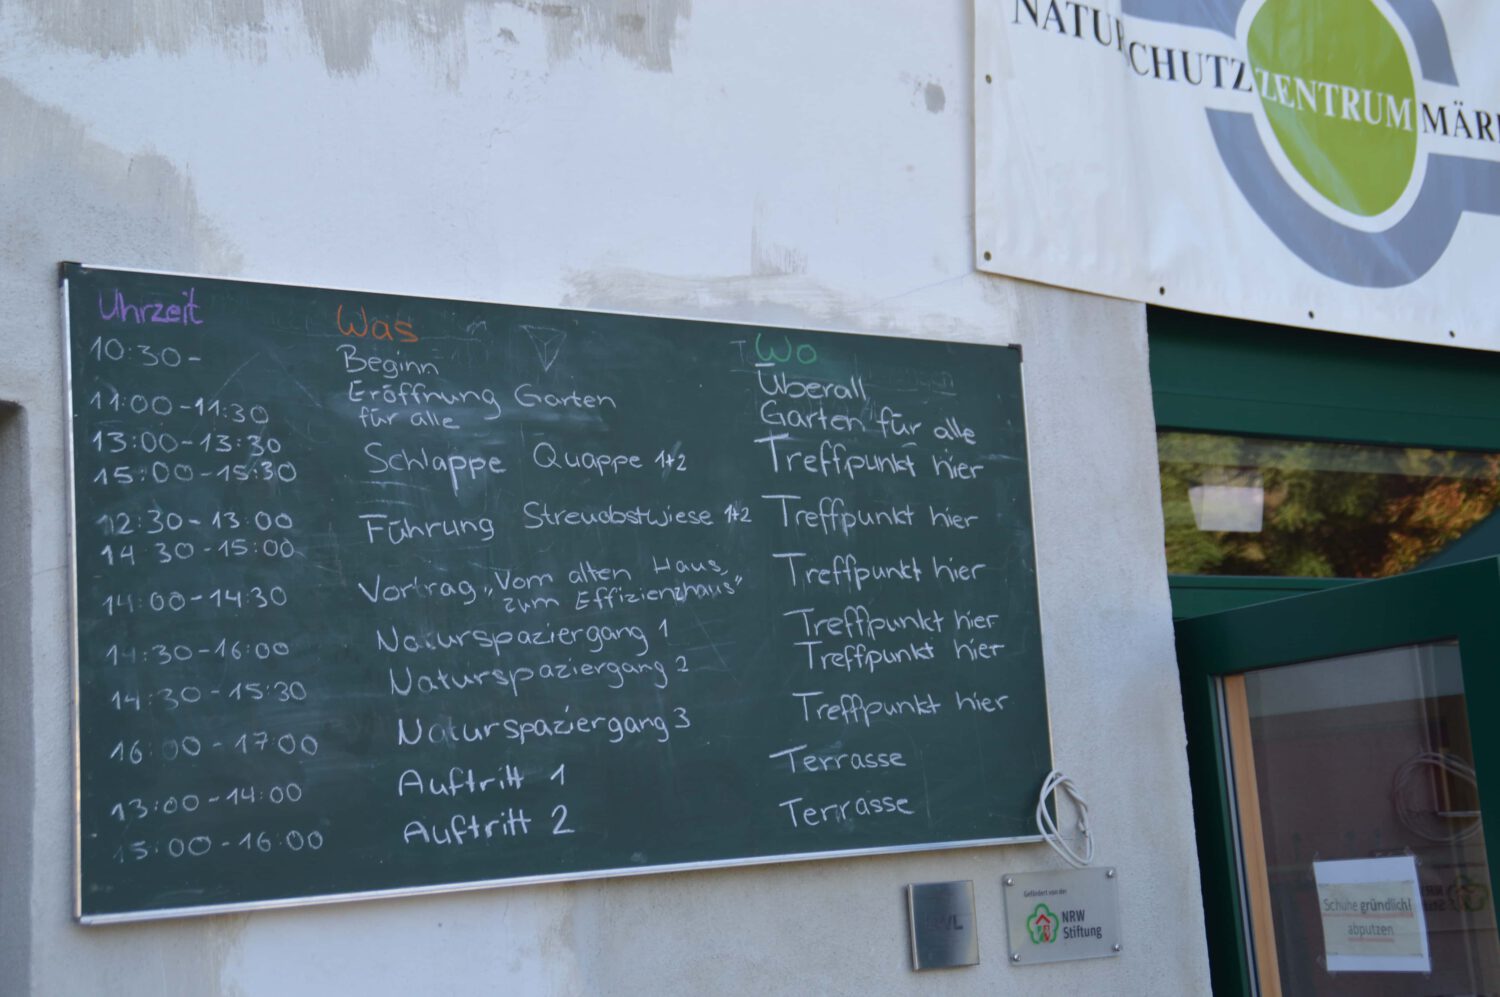 NATUR
CHUTZZENTRUM MÄR
Uhrzeit Was Wo
10:30- Beginn Überall
11:00-11:30 Eröffnung Garten Garten für alle
für alle
13:00-13:30 Schlappe Quappe 1+2 Treffpunkt hier
15:00-15:30
12:30-13:00 Führung Streuobstwiese 1+2 Treffpunkt hier
14:30-15:00
14:00-14:30 Vortrag „Vom alten Haus, Treffpunkt hier
zum Effizienzhaus"
14:30-16:00 Naturspaziergang 1 Treffpunkt hier
14:30-15:30 Naturspaziergang 2 Treffpunkt hier
16:00-17:00 Naturspaziergang 3 Treffpunkt hier
13:00-14:00 Auftritt 1 Terrasse
15:00-16:00 Auftritt 2 Terrasse
Gefördert von der
NRW
Stiftung
Schuhe gründlich!
abputzen